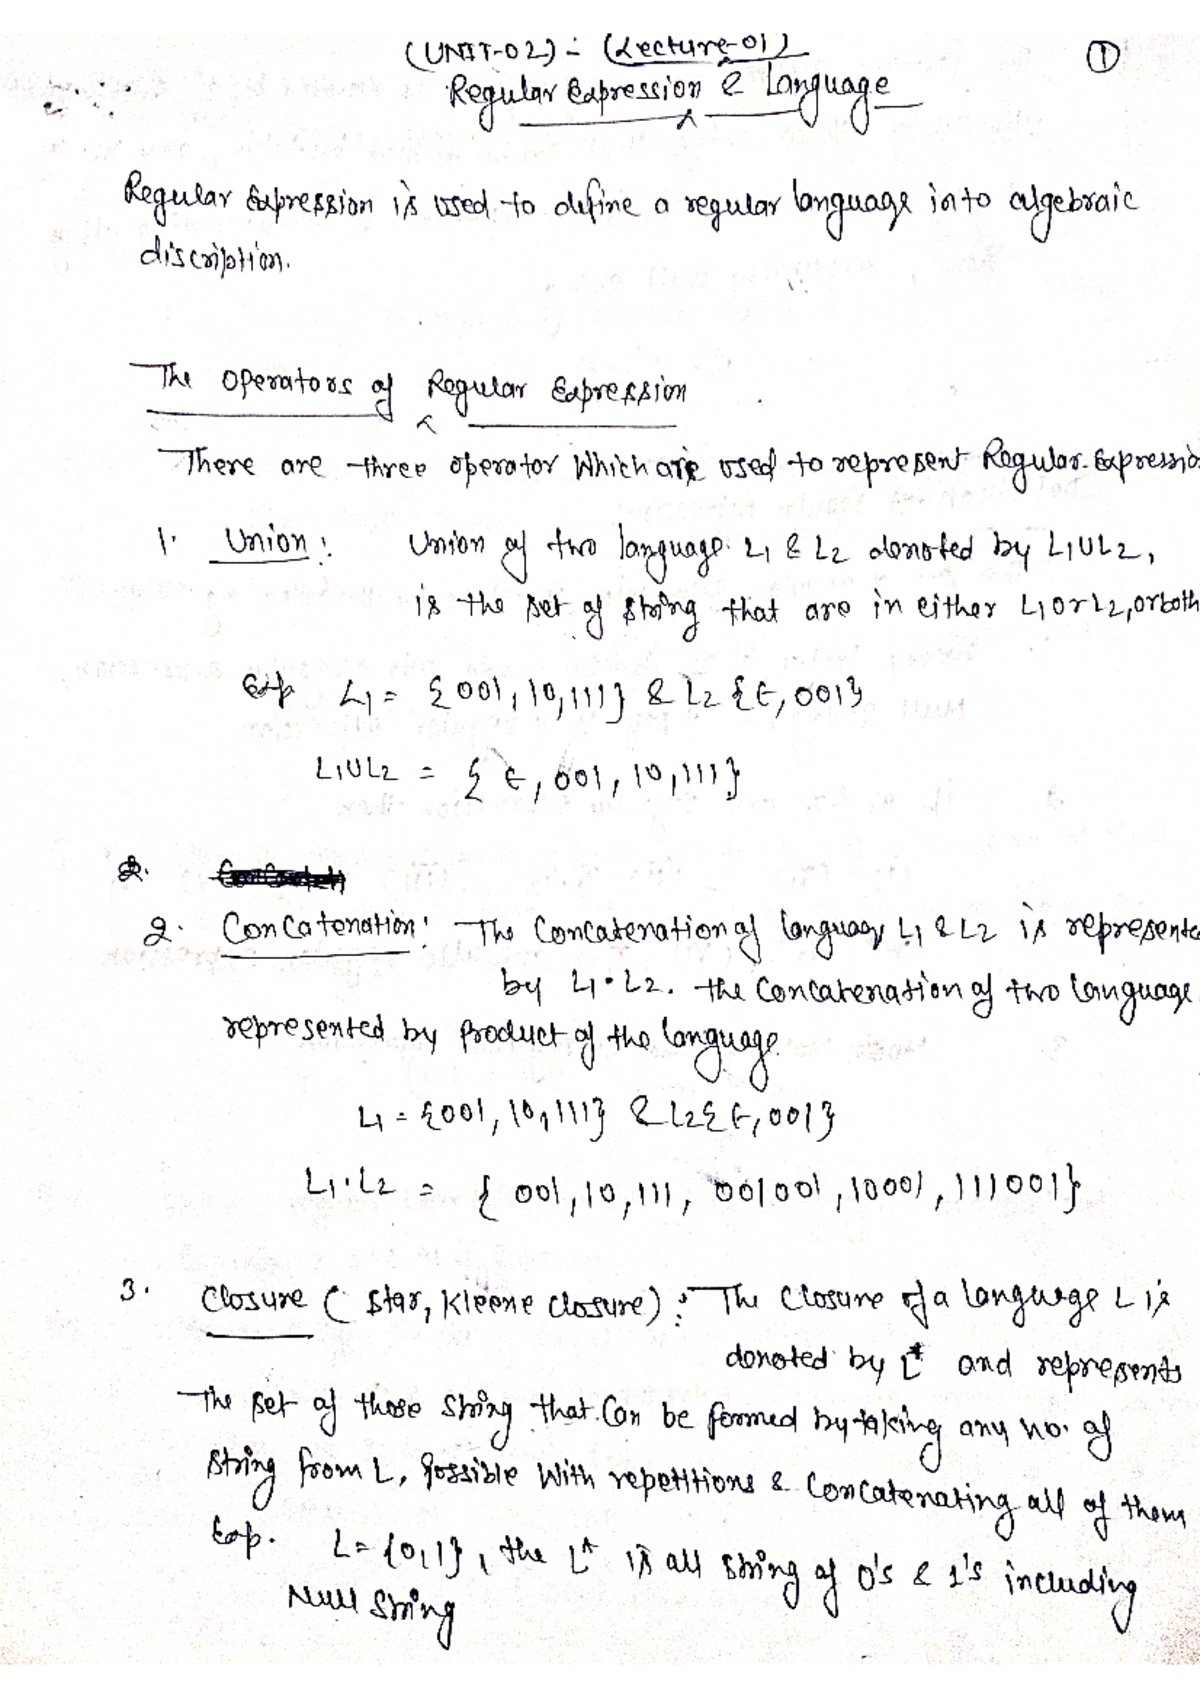 (UNIT-02) :- (Lecture-01)
①
Regular Expression & Language
Regular Expression is used to define a regular language into algebraic
discription.
The Operators of Regular Expression
There are three operator Which are used to represent Regular Expressio
1. Union: Union of two language L1 & L2 denoted by L1UL2,
is the set of string that are in either L1 or L2, or both
Exp L1 = {001, 10, 111} & L2 {ϵ, 001}
L1UL2 = {ϵ, 001, 10, 111}
2.
2. Concatenation: The Concatenation of language L1 & L2 is represente
by L1·L2. the Concatenation of two language
represented by Product of the language.
L1 = {001, 10, 111} & L2{ϵ, 001}
L1·L2 = {001, 10, 111, 001001, 10001, 111001}
3. Closure (Star, Kleene closure): The Closure of a language L is
denoted by L* and represents
The set of those string that Can be formed by taking any no. of
String from L, Possible With repetitions & Concatenating all of them
Exp. L = {0,1}, the L* is all string of 0's & 1's including
Null String